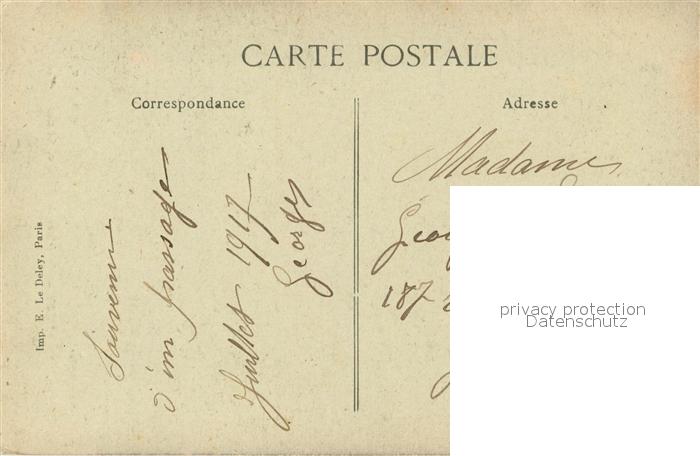 CARTE POSTALE
Correspondance
Adresse
Imp. E. Le Deley, Paris
Souvenir
d'un passage
Juillet 1917
Georges
Madame
187
privacy protection
Datenschutz